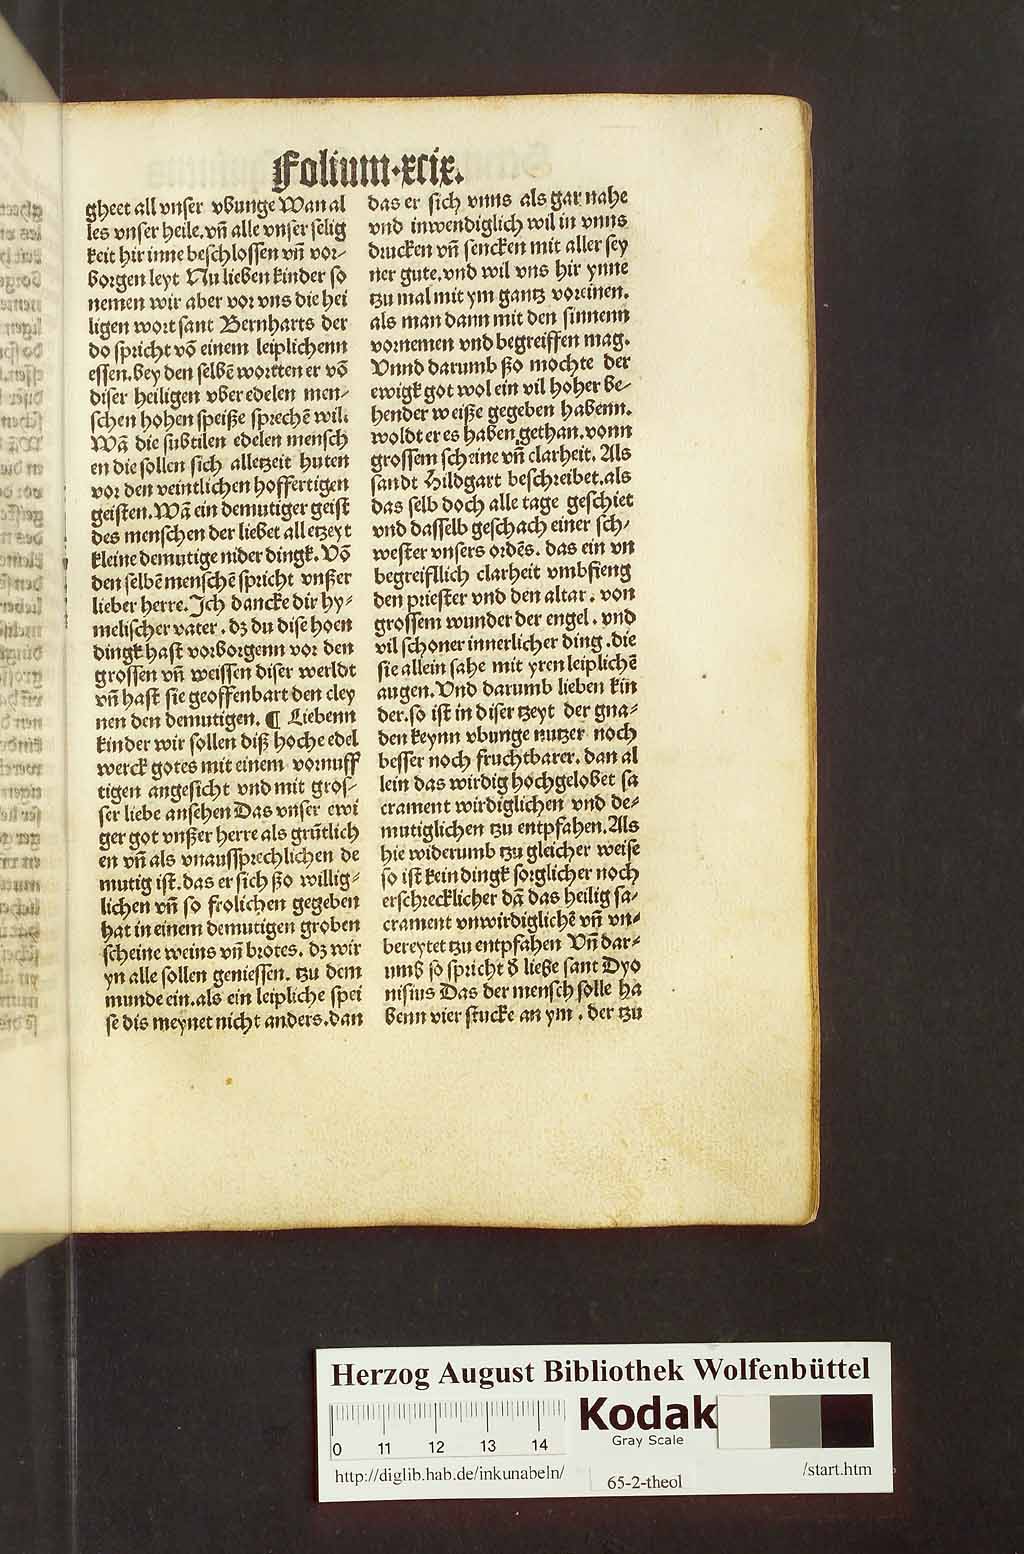 Folium·xcix.
gheet all vnser vbunge Wan al
les vnser heile. vn̄ alle vnser selig
keit hir inne beschlossen vn̄ vor⸗
borgen leyt Nu lieben kinder so
nemen wir aber vor vns die hei
ligen wort sant Bernharts der
do spricht vō einem leiplichenn
essen. bey den selbē wortten er vō
diser heiligen vber edelen men⸗
schen hohen speiße sprechē wil.
Wā die subtilen edelen mensch
en die sollen sich alletzeit huten
vor den veintlichen hoffertigen
geisten. Wā ein demutiger geist
des menschen der liebet alletzeyt
kleine demutige nider dingk. Vō
den selbē menschē spricht vnßer
lieber herre. Ich dancke dir hy⸗
melischer vater . dz du dise hoen
dingk hast vorborgenn vor den
grossen vn̄ weissen diser werldt
vn̄ hast sie geoffenbart den cley
nen den demutigen. ¶ Liebenn
kinder wir sollen diß hoche edel
werck gotes mit einem vornuff
tigen angesicht vnd mit gros⸗
ser liebe ansehen Das vnser ewi
ger got vnßer herre als grūtlich
en vn̄ als vnaussprechlichen de
mutig ist. das er sich ßo willig⸗
lichen vn̄ so frolichen gegeben
hat in einem demutigen groben
scheine weins vn̄ brotes. dz wir
yn alle sollen geniessen. tzu dem
munde ein. als ein leipliche spei
se dis meynet nicht anders. dan
das er sich vnns als gar nahe
vnd inwendiglich wil in vnns
drucken vn̄ sencken mit aller sey
ner gute. vnd wil vns hir ynne
tzu mal mit ym gantz voreinen.
als man dann mit den sinnenn
vornemen vnd begreiffen mag.
Vnnd darumb ßo mochte der
ewigk got wol ein vil hoher be⸗
hender weiße gegeben habenn.
woldt er es haben gethan. vonn
grossem scheine vn̄ clarheit. Als
sandt Hildgart beschreibet. als
das selb doch alle tage geschiet
vnd dasselb geschach einer sch⸗
wester vnsers ordēs. das ein vn
begreifllich clarheit vmbfieng
den priester vnd den altar . von
grossem wunder der engel . vnd
vil schoner innerlicher ding . die
sie allein sahe mit yren leiplichē
augen. Vnd darumb lieben kin
der. so ist in diser tzeyt der gna⸗
den keynn vbunge nutzer noch
besser noch fruchtbarer. dan al
lein das wirdig hochgelobet sa
crament wirdiglichen vnd de⸗
mutiglichen tzu entpfahen. Als
hie widerumb tzu gleicher weise
so ist kein dingk sorglicher noch
erschrecklicher dā das heilig sa⸗
crament vnwirdiglichē vn̄ vn⸗
bereytet tzu entpfahen Vn̄ dar⸗
umb so spricht d̕ liebe sant Dyo
nisius Das der mensch solle ha
benn vier stucke an ym . der tzu
Herzog August Bibliothek Wolfenbüttel
Kodak
Gray Scale
0 11 12 13 14
http://diglib.hab.de/inkunabeln/
65-2-theol
/start.htm